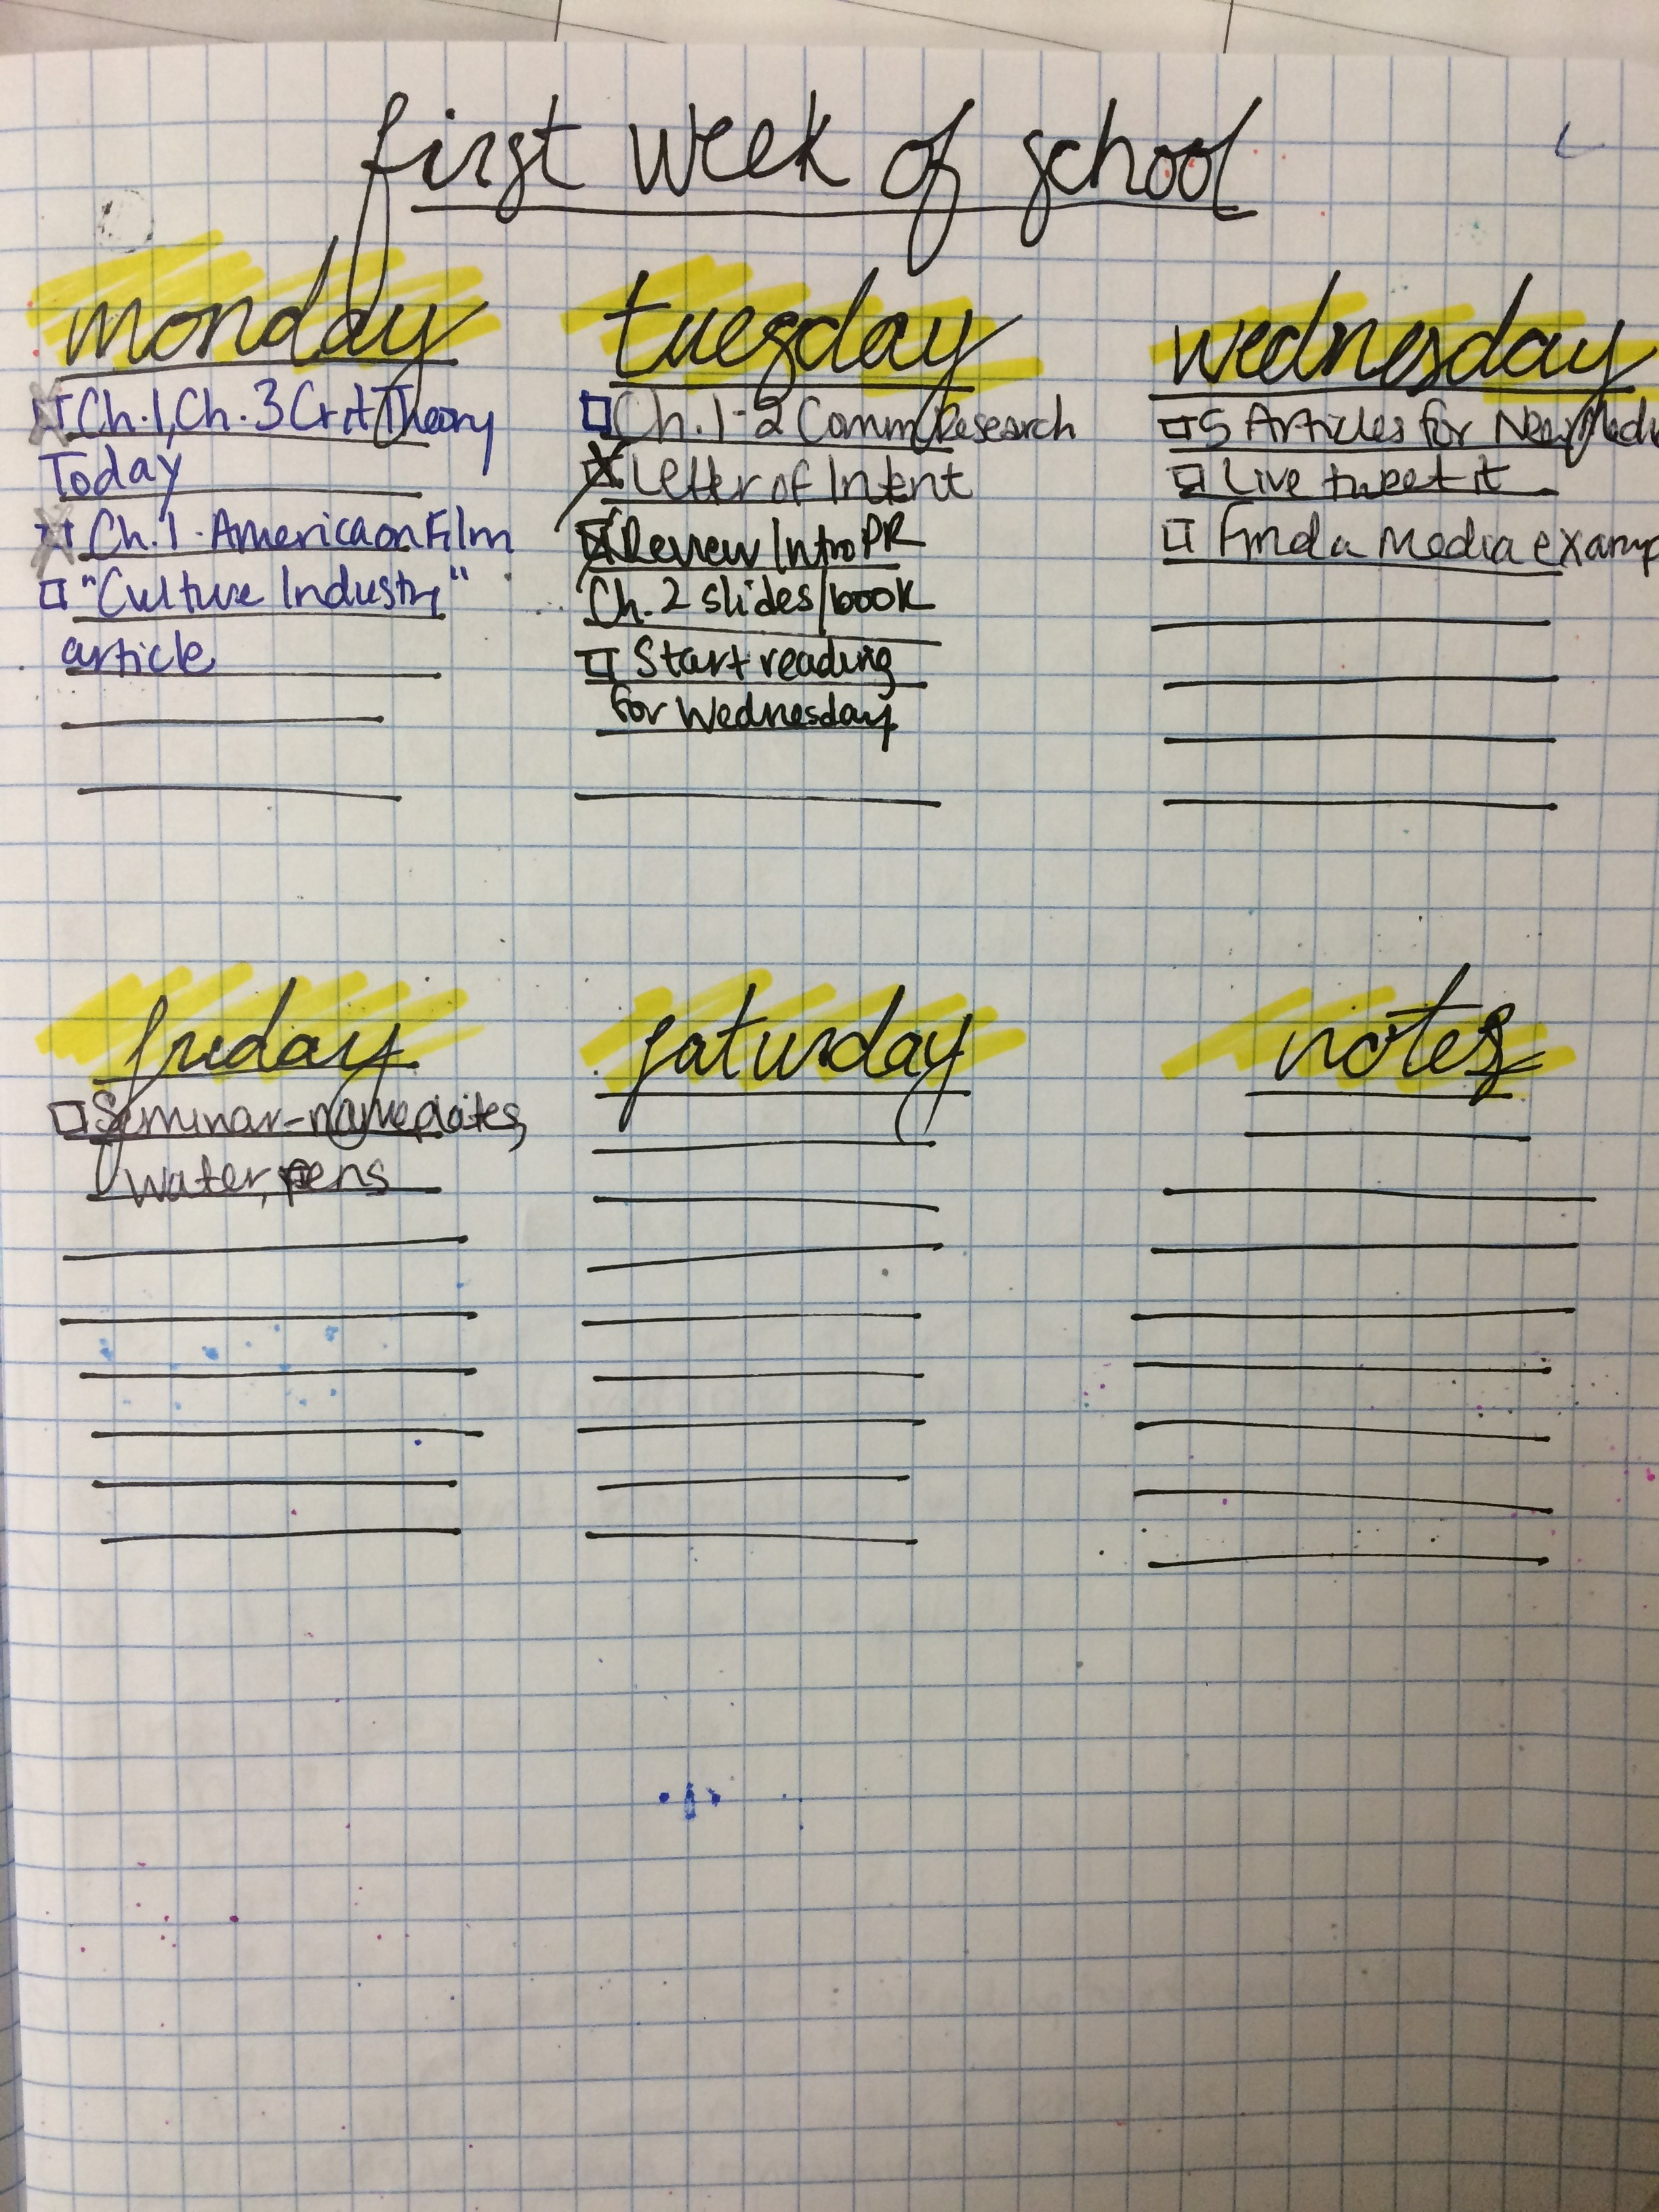 first week of school
monday
Ch.1, Ch.3 Crit Theory
Today
Ch.1 - America on Film
"Culture Industry"
article
tuesday
Ch.1-2 Comm Research
Letter of Intent
Review Intro PR
Ch.2 slides/book
Start reading
for Wednesday
wednesday
5 Articles for New Medi
Live tweet it
Find a Media examp
friday
Seminar-nameplates,
water, pens
saturday
notes